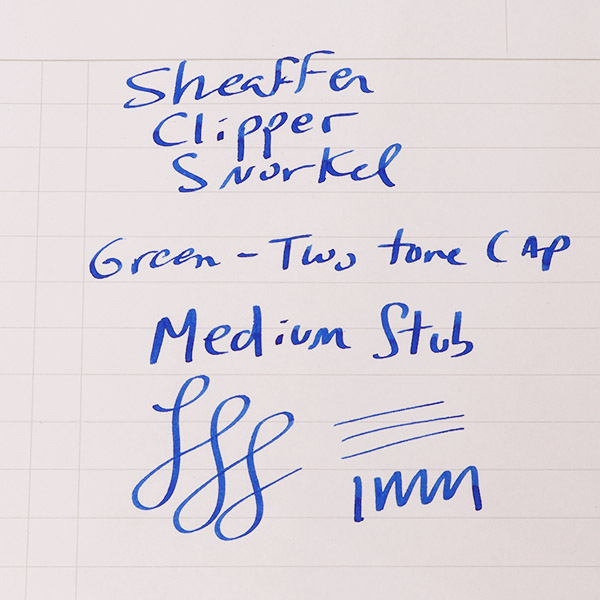 Sheaffer
Clipper
Snorkel
Green - Two tone Cap
Medium Stub